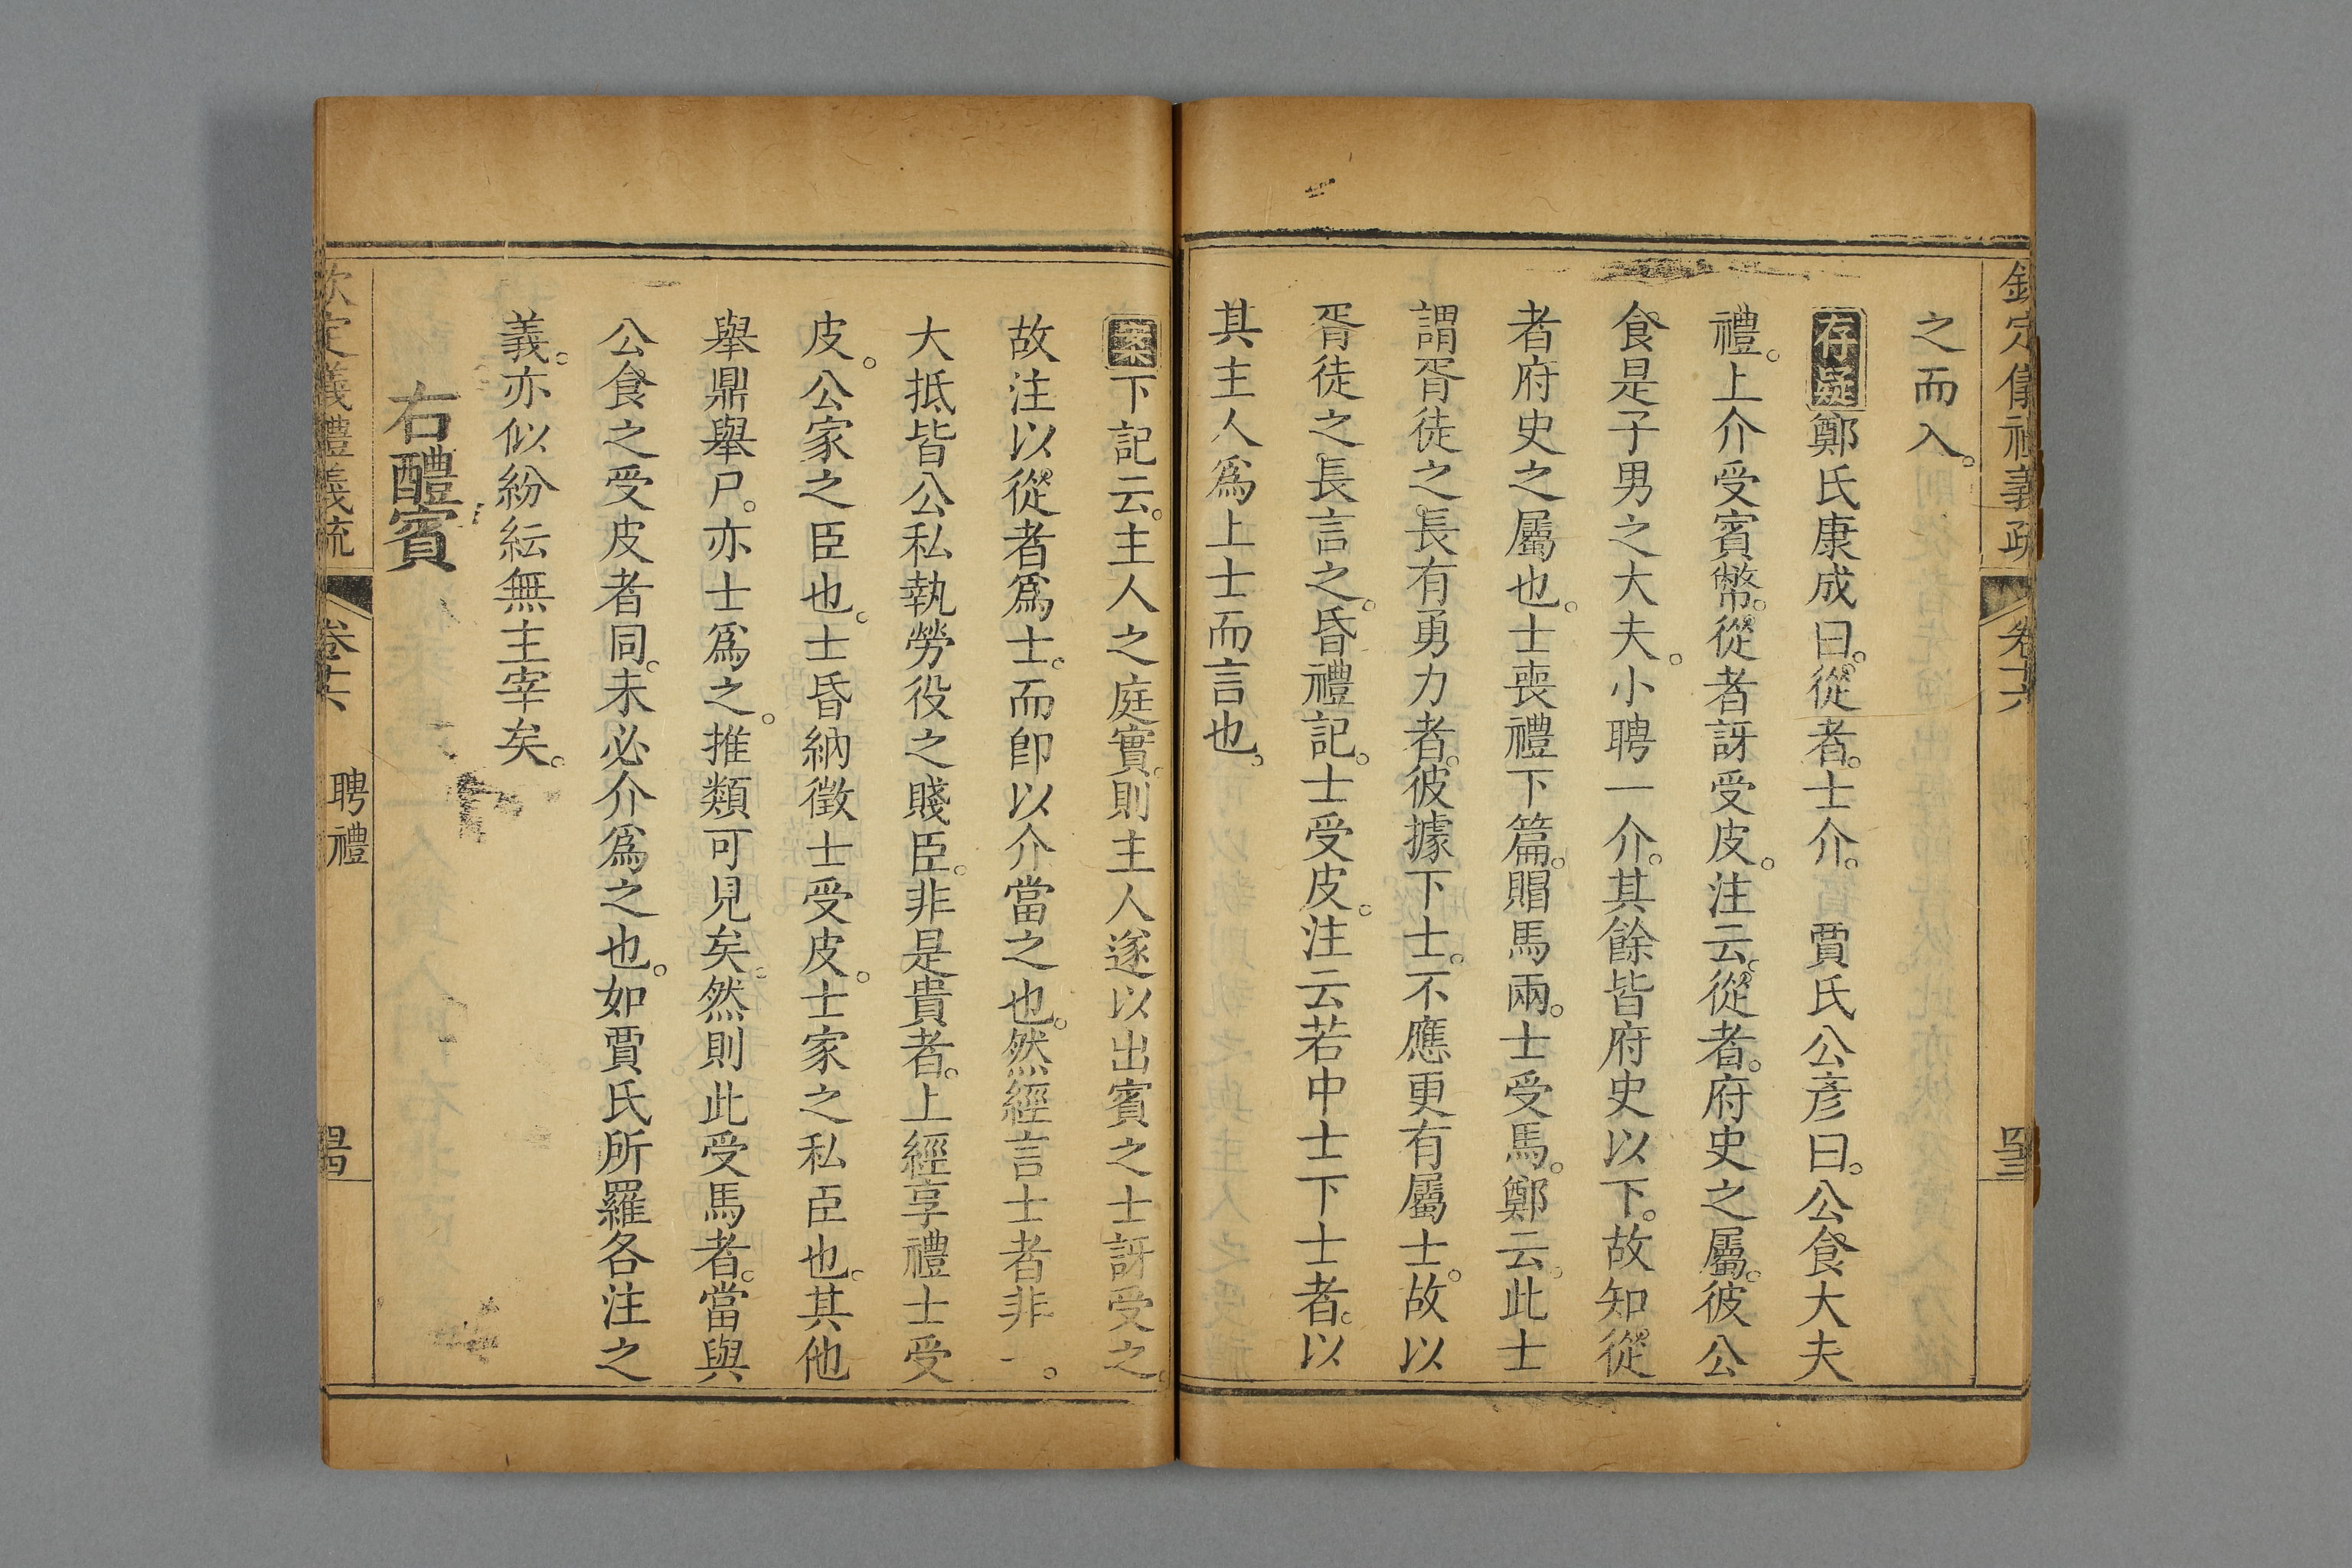 欽定儀禮義疏 卷十六
之而入。
存疑鄭氏康成曰。從者。士介。 賈氏公彥曰。公食大夫
禮。上介受賓幣。從者訝受皮。注云。從者。府史之屬。彼公
食是子男之大夫。小聘一介。其餘皆府史以下。故知從
者府史之屬也。士喪禮下篇。賵馬兩。士受馬。鄭云。此士
謂胥徒之長有勇力者。彼據下士。不應更有屬士。故以
胥徒之長言之。昏禮記。士受皮。注云若中士下士者。以
其主人爲上士而言也。
案下記云。主人之庭實。則主人遂以出賓之士訝受之。
故注以從者爲士。而卽以介當之也。然經言士者非一。
大抵皆公私執勞役之賤臣。非是貴者。上經享禮士受
皮。公家之臣也。士昏納徵士受皮。士家之私臣也。其他
舉鼎舉尸。亦士爲之。推類可見矣。然則此受馬者。當與
公食之受皮者同。未必介爲之也。如賈氏所羅各注之
義。亦似紛紜無主宰矣。
右醴賓
欽定儀禮義疏 卷十六 聘禮